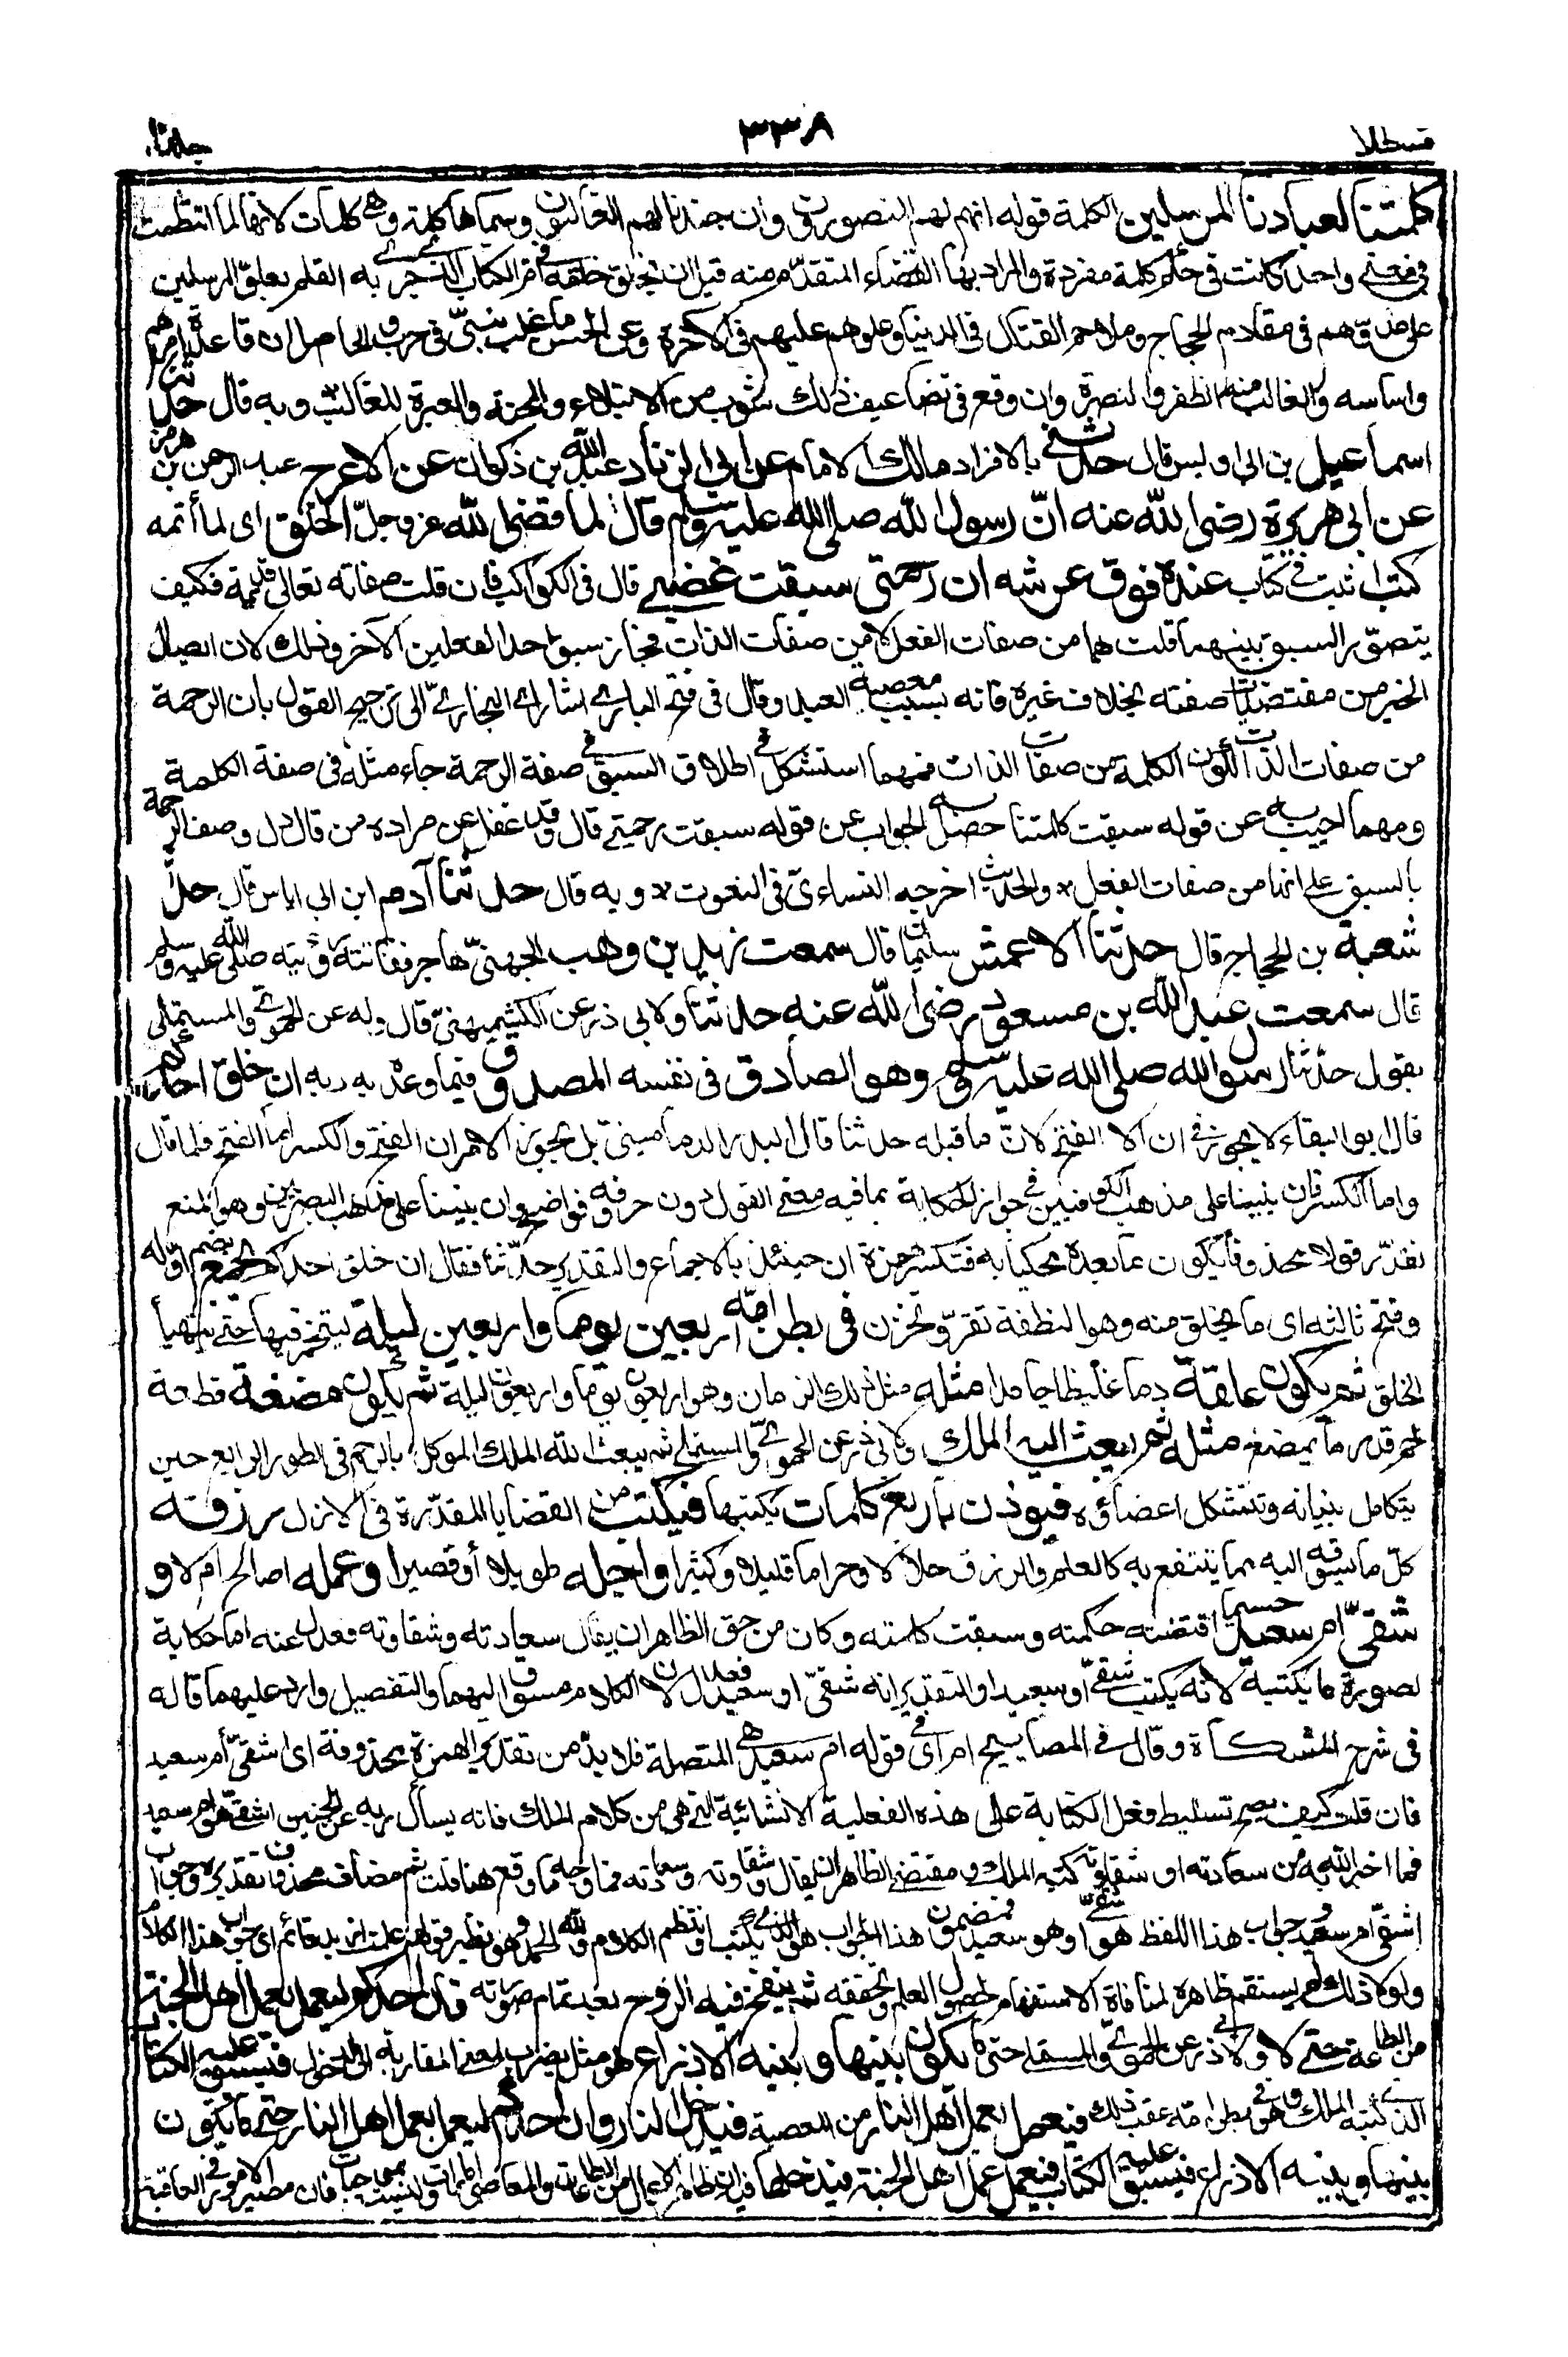 قسطلا ٣٣٨ جلد١٠
كلمتنا لعبادنا المرسلين الكلمة قوله انهم لهم المنصورون وان جندنا لهم الغالبون وسماها كلمة وهى كلمات لانها لما انتظمت
فى معنى واحد كانت فى حكم كلمة مفردة والمراد بها القضاء المتقدّم منه قبل ان يخلق خلقه فى ام الكتاب الذى جرى به القلم بعلوّ المرسلين
على عدوّهم فى مقاوم الحجاج وملاحم القتال فى الدنيا وعلوهم عليهم فى الآخرة وعن الحسن ما غلب نبىّ فى حرب والحاصل ان قاعدة امرهم
واساسه والغالب منه الظفر والنصرة وان وقع فى تضاعيف ذلك شوب من الابتلاء والمحنة والعبرة للغالب وبه قال حدثنا
اسماعيل بن ابى اويس قال حدثنى بالافراد مالك الامام عن ابى الزناد عبد الله بن ذكوان عن الاعرج عبد الرحمن بن هرمز
عن ابى هريرة رضى الله عنه انّ رسول الله صلى الله عليه وسلم قال لما قضى الله عز وجلّ الخلق اى لما أتمه
كتب اثبت فى كتاب عنده فوق عرشه ان رحمتى سبقت غضبى قال فى الكواكب فان قلت صفاته تعالى قديمة فكيف
يتصوّر السبق بينهما قلت هما من صفات الفعل لا من صفات الذات فجاز سبق احد الفعلين الآخر وذلك لان ايصال
الخير من مقتضيات صفته بخلاف غيره فانه بسبب معصية العبد وقال فى فتح البارى اشار اى البخارىّ الى ترجيح القول بان الرحمة
من صفات الذات لكون الكلمة من صفات الذات فمهما استشكل فى اطلاق السبق فى صفة الرحمة جاء مثله فى صفة الكلمة
ومهما اجيب به عن قوله سبقت كلمتنا حصل به الجواب عن قوله سبقت رحمتى قال وقد غفل عن مراده من قال دل وصف الرحمة
بالسبق على انها من صفات الفعل * والحديث اخرجه النساءىّ فى النعوت * وبه قال حدثنا آدم ابن ابى اياس قال حدثنا
شعبة بن الحجاج قال حدثنا الاعمش سليمان قال سمعت زيد بن وهب الجهنىّ هاجر ففاتته رؤيته صلى الله عليه وسلم
قال سمعت عبد الله بن مسعود رضى الله عنه حدثنا ولابى ذر عن الكشميهنىّ قال وله عن الحموى والمستملى
يقول حدّثنا رسول الله صلى الله عليه وسلم وهو الصادق فى نفسه المصدوق فيما وعده به ربه ان خلق احدكم
قال ابو البقاء لا يجوز فى ان الا الفتح لانّ ما قبله حدثنا قال البدر الدمامينىّ بل يجوز الامران الفتح والكسر اما الفتح فلما قال
واما الكسر فان بنينا على مذهب الكوفيين فى جواز الحكاية بما فيه معنى القول دون حرفه فواضح وان بنينا على مذهب البصريين وهو المنع
نقدّر قولا محذوفا يكون ما بعده محكيا به فتكسر همزة ان حينئذ بالاجماع والتقدير حدّثنا فقال ان خلق احدكم يجمع بضم اوّله
وفتح ثالثه اى ما يخلق منه وهو النطفة تقرّ وتخزن فى بطن امّه اربعين يوما واربعين ليلة ليتخمر فيها حتى يتهيأ
الخلق ثم يكون علقة دما غليظا جامدا مثله مثل ذلك الزمان وهو اربعون يوما واربعون ليلة ثم يكون مضغة قطعة
لحم قدر ما يمضغ مثله ثم يبعث اليه الملك ولابى ذر عن الحموى والمستملى ثم يبعث الله الملك الموكل بالرحم فى الطور الرابع حين
يتكامل بنيانه وتتشكل اعضاؤه فيؤذن باربع كلمات يكتبها فيكتب من القضايا المقدّرة فى الازل رزقه
كلّ ما يسوقه اليه مما ينتفع به كالعلم والرزق حلالا وحراما قليلا وكثيرا واجله طويلا أو قصيرا وعمله اصالح ام لا و
شقىّ ام سعيد حسبما اقتضته حكمته وسبقت كلمته وكان من حق الظاهر ان يقال سعادته وشقاوته فعدل عنه اما حكاية
لصورة ما يكتبه لانه يكتب شقى او سعيد او التقدير انه شقىّ او سعيد فعدل لان الكلام مسوق اليهما والتفصيل وارد عليهما قاله
فى شرح المشكاة وقال فى المصابيح ام اى فى قوله ام سعيد هى المتصلة فلا بدّ من تقدير الهمزة محذوفة اى اشقىّ أم سعيد
فان قلت كيف يصح تسليط فعل الكتابة على هذه الفعلية الانشائية التى هى من كلام الملك فانه يسأل ربه عن الجنين اشقىّ هو ام سعيد
فما اخبر الله به من سعادته او شقاوته كتبه الملك ومقتضى الظاهر ان يقال وشقاوته وسعادته فما وجه ما وقع هنا قلت ثم مضاف محذوف تقديره وجواب
اشقىّ ام سعيد وجواب هذا اللفظ هو شقىّ او هو سعيد فمضمون هذا الجواب هو الذى يكتب وانتظم الكلام ولله الحمد وهو نظير قولهم علمت ازيد قائم اى جواب هذا الكلام
ولولا ذلك لم يستقم ظاهره لمنافاة الاستفهام لحصول العلم وتحققه ثم ينفخ فيه الروح بعد تمام صورته فان احدكم ليعمل بعمل اهل الجنة
من الطاعة حتى لا ولابى ذر عن الحموى والمستملى حتى ما يكون بينها وبينه الا ذراع هو مثل يضرب لمعنى المقاربة الى الدخول فيسبق عليه الكتاب
الذى كتبه الملك وهو فى بطن امّه عقب ذلك فيعمل بعمل اهل النار من المعصية فيدخل النار وان احدكم ليعمل بعمل اهل النار حتى ما يكون
بينها وبينه الا ذراع فيسبق عليه الكتاب فيعمل عمل اهل الجنة فيدخلها فيه ان ظاهر الاعمال من الطاعات والمعاصى امارات وليست بموجبات فان مصير الامور فى العاقبة